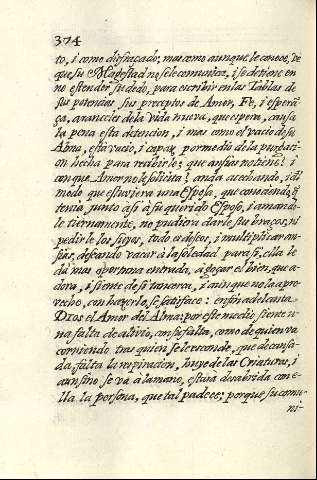 374
to, i como disfraçado, mas como aunque le conoce, ve
que su Magestad no se le comunica, i se detiene en
no estender su dedo, para escribir en las Tablas de
sus potencias sus preceptos de Amor, Fe, i esperā
ça, aranceles de la vida nueva, que espera, causa
la pena esta detencion, i mas como el vacio de su
Alma, està vacio, i capaz por medio de la purgaci
on hecha para recibirle; que ansias no tiene? i
aunque Amor no le solicita? anda acechando, i al
modo que estuviera una Esposa, que conociendo q
tenia junto a si à su querido Esposo, i amando
le tiernamente, no pudiera darle sus braços, ni
pedirle los suyos, todo es deseos, i multiplicar an-
sias, deseando vacar à la soledad para si, ella le
dà mas oportuna entrada, a goçar el bien, que a-
dora, i siente de si tan cerca, i aunque no la apro-
vecho, con hazerlo, se satisface: en fin adelanta
Dios el Amor del Alma: por este medio siente u-
na falta de alivio, con su falta, como de quien va
corriendo tras quien se le esconde, que de cansa-
da, falta la respiracion, huye de las Criaturas, i
aun sino se và à la mano, estarà desabrida con e-
lla la persona, que tal padece; porque su comu-
ni-